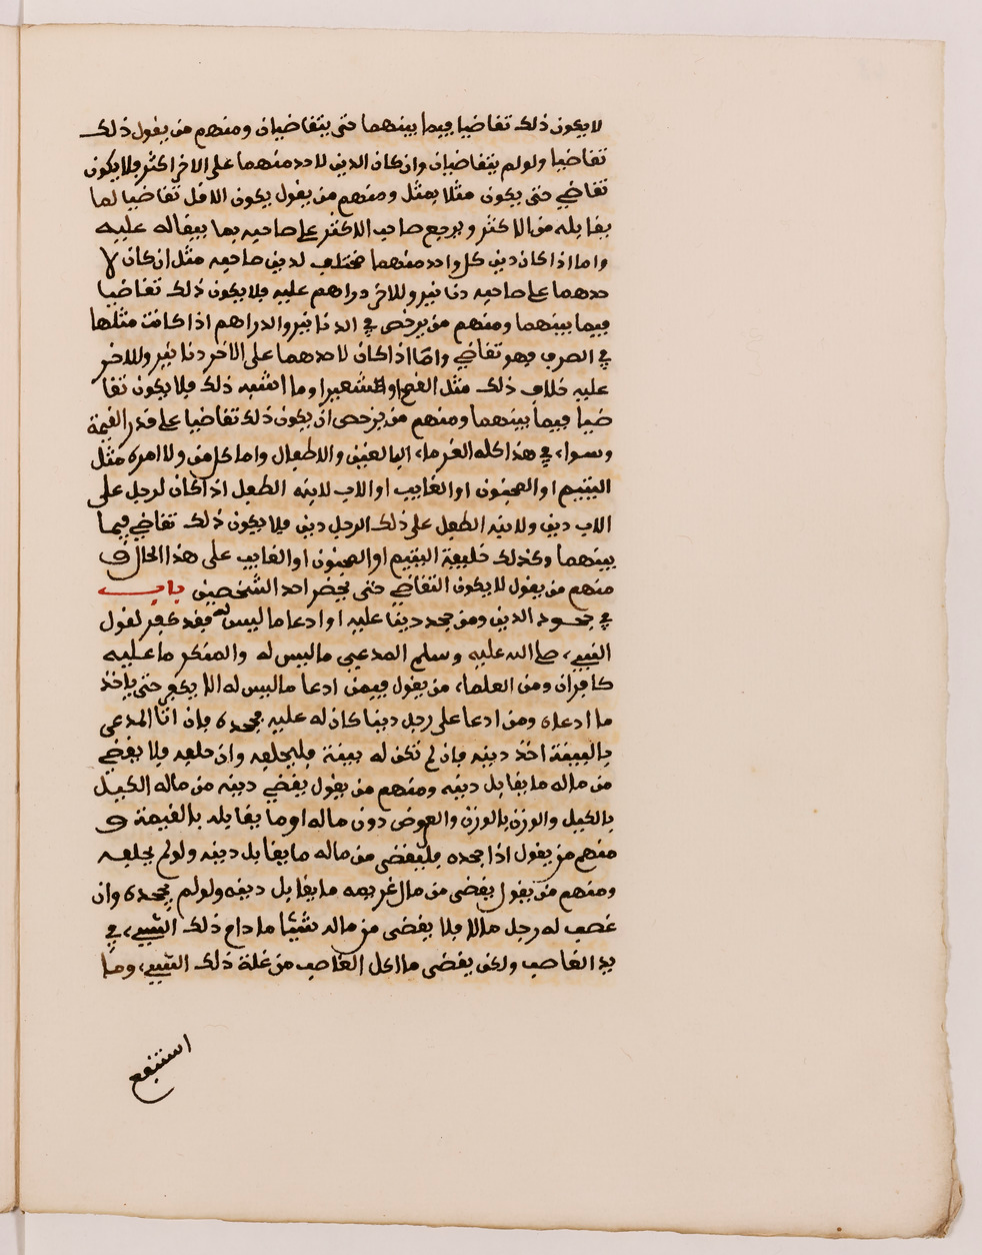 لا يكون ذلك تقاضيا فيما بينهما حتى يتقاضيان ومنهم من يقول ذلك
تقاضيا ولو لم يتقاضيان وان كان الدين لاحد منهما على الاخر اكثر فلا يكون
تقاضي حتى يكون مثلا بمثل ومنهم من يقول يكون الاقل تقاضيا لما
يقابله من الاكثر ويرجع صاحب الاكثر على صاحبه بما بيقا له عليه
واما اذا كان دين كل واحد منهما مختلف لدين صاحبه مثل ان كان لا
حدهما على صاحبه دنانير وللاخر دراهم عليه فلا يكون ذلك تقاضيا
فيما بينهما ومنهم من يرخص في الدنانير والدراهم اذا كانت مثلها
في الصرف فهو تقاضي واما اذا كان لاحدهما على الاخر دنانير وللاخر
عليه خلاف ذلك مثل القمح او الشعير او ما اشبه ذلك فلا يكون تقا
ضيا فيما بينهما ومنهم من يرخص ان يكون ذلك تقاضيا على قدر القيمة
وسواء في هذا كله الغرماء البالغين والاطفال واما كل من ولا امره مثل
اليتيم او المجنون او الغايب او الاب لابنه الطفل اذا كان لرجل على
الاب دين ولابنه الطفل على ذلك الرجل دين فلا يكون ذلك تقاضي فيما
بينهما وكذلك خليفة اليتيم او المجنون او الغايب على هذا الحال و
منهم من يقول لا يكون التقاضي حتى يحضر احد الشخصين باب
في جحود الدين ومن جحد دينا عليه او ادعا ما ليس له فقد كفر لقول
النبيء صلى الله عليه وسلم المدعي ما ليس له والمنكر ما عليه
كافران ومن العلماء من يقول فيمن ادعا ما ليس له الا يكفر حتى ياخذ
ما ادعاه ومن ادعا على رجل دينا كان له عليه فجحده فان اتا المدعي
بالبينة اخذ دينه فان لم تكن له بينة فليحلفه وان حلفه فلا يقضي
من ماله ما يقابل دينه ومنهم من يقول يقضي دينه من ماله الكيل
بالكيل والوزن بالوزن والعوض دون ماله او ما يقابله بالقيمة و
منهم من يقول اذا جحده فليقضي من ماله ما يقابل دينه ولو لم يحلفه
ومنهم من يقول يقضي من مال غريمه ما يقابل دينه ولو لم يجحده وان
غصب له رجل مالا فلا يقضي من ماله شيئا ما دام ذلك الشيء في
يد الغاصب ولكن يقضي ما اكل الغاصب من غلة ذلك الشيء وما
استنفع